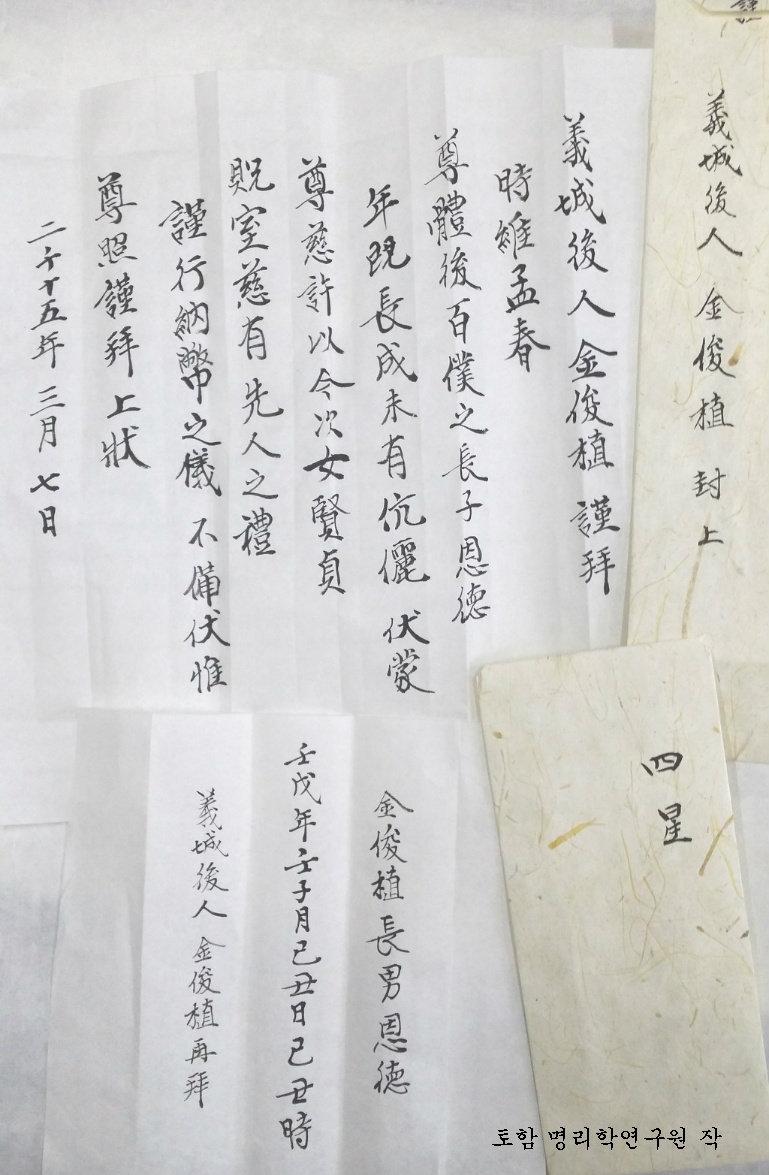 謹
義城後人 金俊植 封上
義城後人 金俊植 謹拜
時維孟春
尊體後百僕之長子恩德
年既長成未有伉儷 伏蒙
尊慈許以令次女賢貞
貺室慈有先人之禮
謹行納幣之儀 不備伏惟
尊照謹拜上狀
二千十五年 三月 七日
四星
金俊植 長男 恩德
壬戌年 壬子月 己丑日 己丑時
義城後人 金俊植 再拜
토함 명리학연구원 작